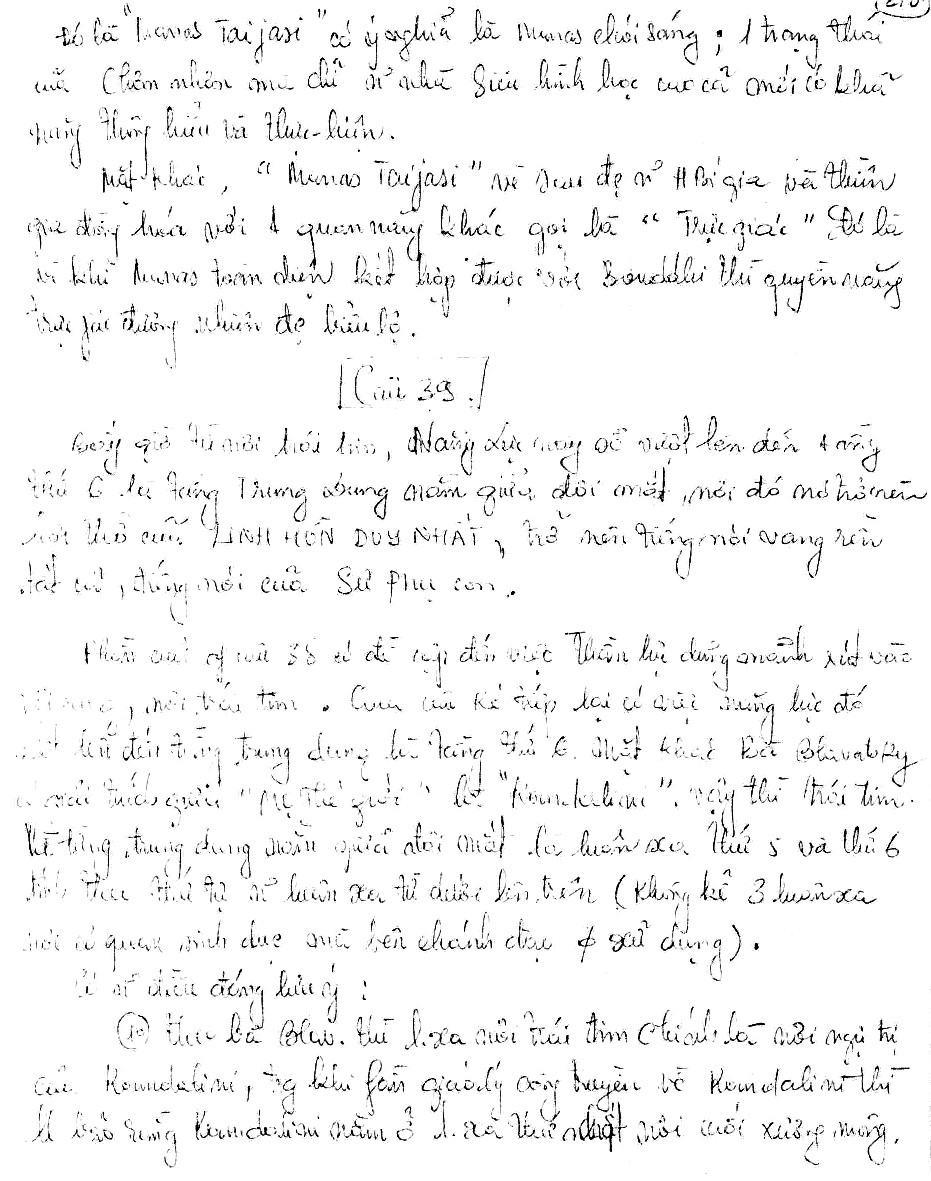 Đó là "Manas Taijasi" có ý nghĩa là Manas chói sáng ; 1 trạng thái
của Chân nhân mà chỉ nhà Siêu hình học cao cả mới có khả
năng thông hiểu và thực-hiện.
Mặt khác, "Manas Taijasi" về sau đẹ Bí gia và thiền
gia đồng hoá với 1 quan năng khác gọi là "Trực giác" Đó là
vì khi Manas toàn diện kết hợp được với Bouddhi thì quyền năng
trực giác đương nhiên đẹ biểu lộ.
[Câu 39.]
Bây giờ từ nơi trái tim, Năng lực này sẽ vượt lên đến tầng
thứ 6 là tầng Trung dung nằm giữa đôi mắt, nơi đó nó trở nên
hơi thở của LINH HỒN DUY NHẤT, trở nên tiếng nói vang rền
tất cả, tiếng nói của Sư Phụ con.
Phần cuối of câu 38 có đề cập đến việc Thần lực dũng mãnh rút vào
nơi trái tim. Qua câu kế tiếp lại có việc năng lực đó
vượt lên đến tầng trung dung là tầng thứ 6. Mặt khác Bà Blavatsky
có giải thích giữa "Mẹ Thế giới" là "Koundalini". vậy thì trái tim
và tầng trung dung nằm giữa đôi mắt là luân xa thứ 5 và thứ 6
tính theo thứ tự luân xa từ dưới lên trên (không kể 3 luân xa
nơi cơ quan sinh dục mà bên chánh đạo ϕ sử dụng).
Có điều đáng lưu ý :
1o) theo bà Blav. thì l.xa nơi trái tim chính là nơi ngự trị
của Koundalini, tg khi giáo lý công truyền về Koundalini thì
bảo rằng Koundalini nằm ở l.xa thứ nhất nơi cuối xương mông.